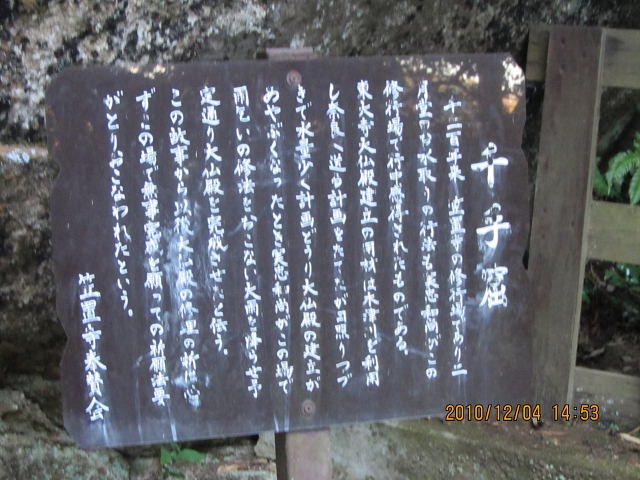 千手窟
千二百年来 笠置寺の修行場であり二
月堂のお水取りの行法も実忠和尚がこの
修行場で行中感得されたものである。
東大寺大仏殿建立の用材は木津川を利用
し奈良へ送る計画をたてたが日照りつづ
きで水量少く計画どうり大仏殿の建立が
めやぶくなったとき実忠和尚がこの場で
雨乞いの修法をおこない大雨を降らせ予
定通り大仏殿を完成させたと伝う。
この故事から以後大仏殿の修理の折には必
ずこの場で無事完成を願っての祈願法要
がとりおこなわれたという。
笠置寺奉賛会
2010/12/04 14:53